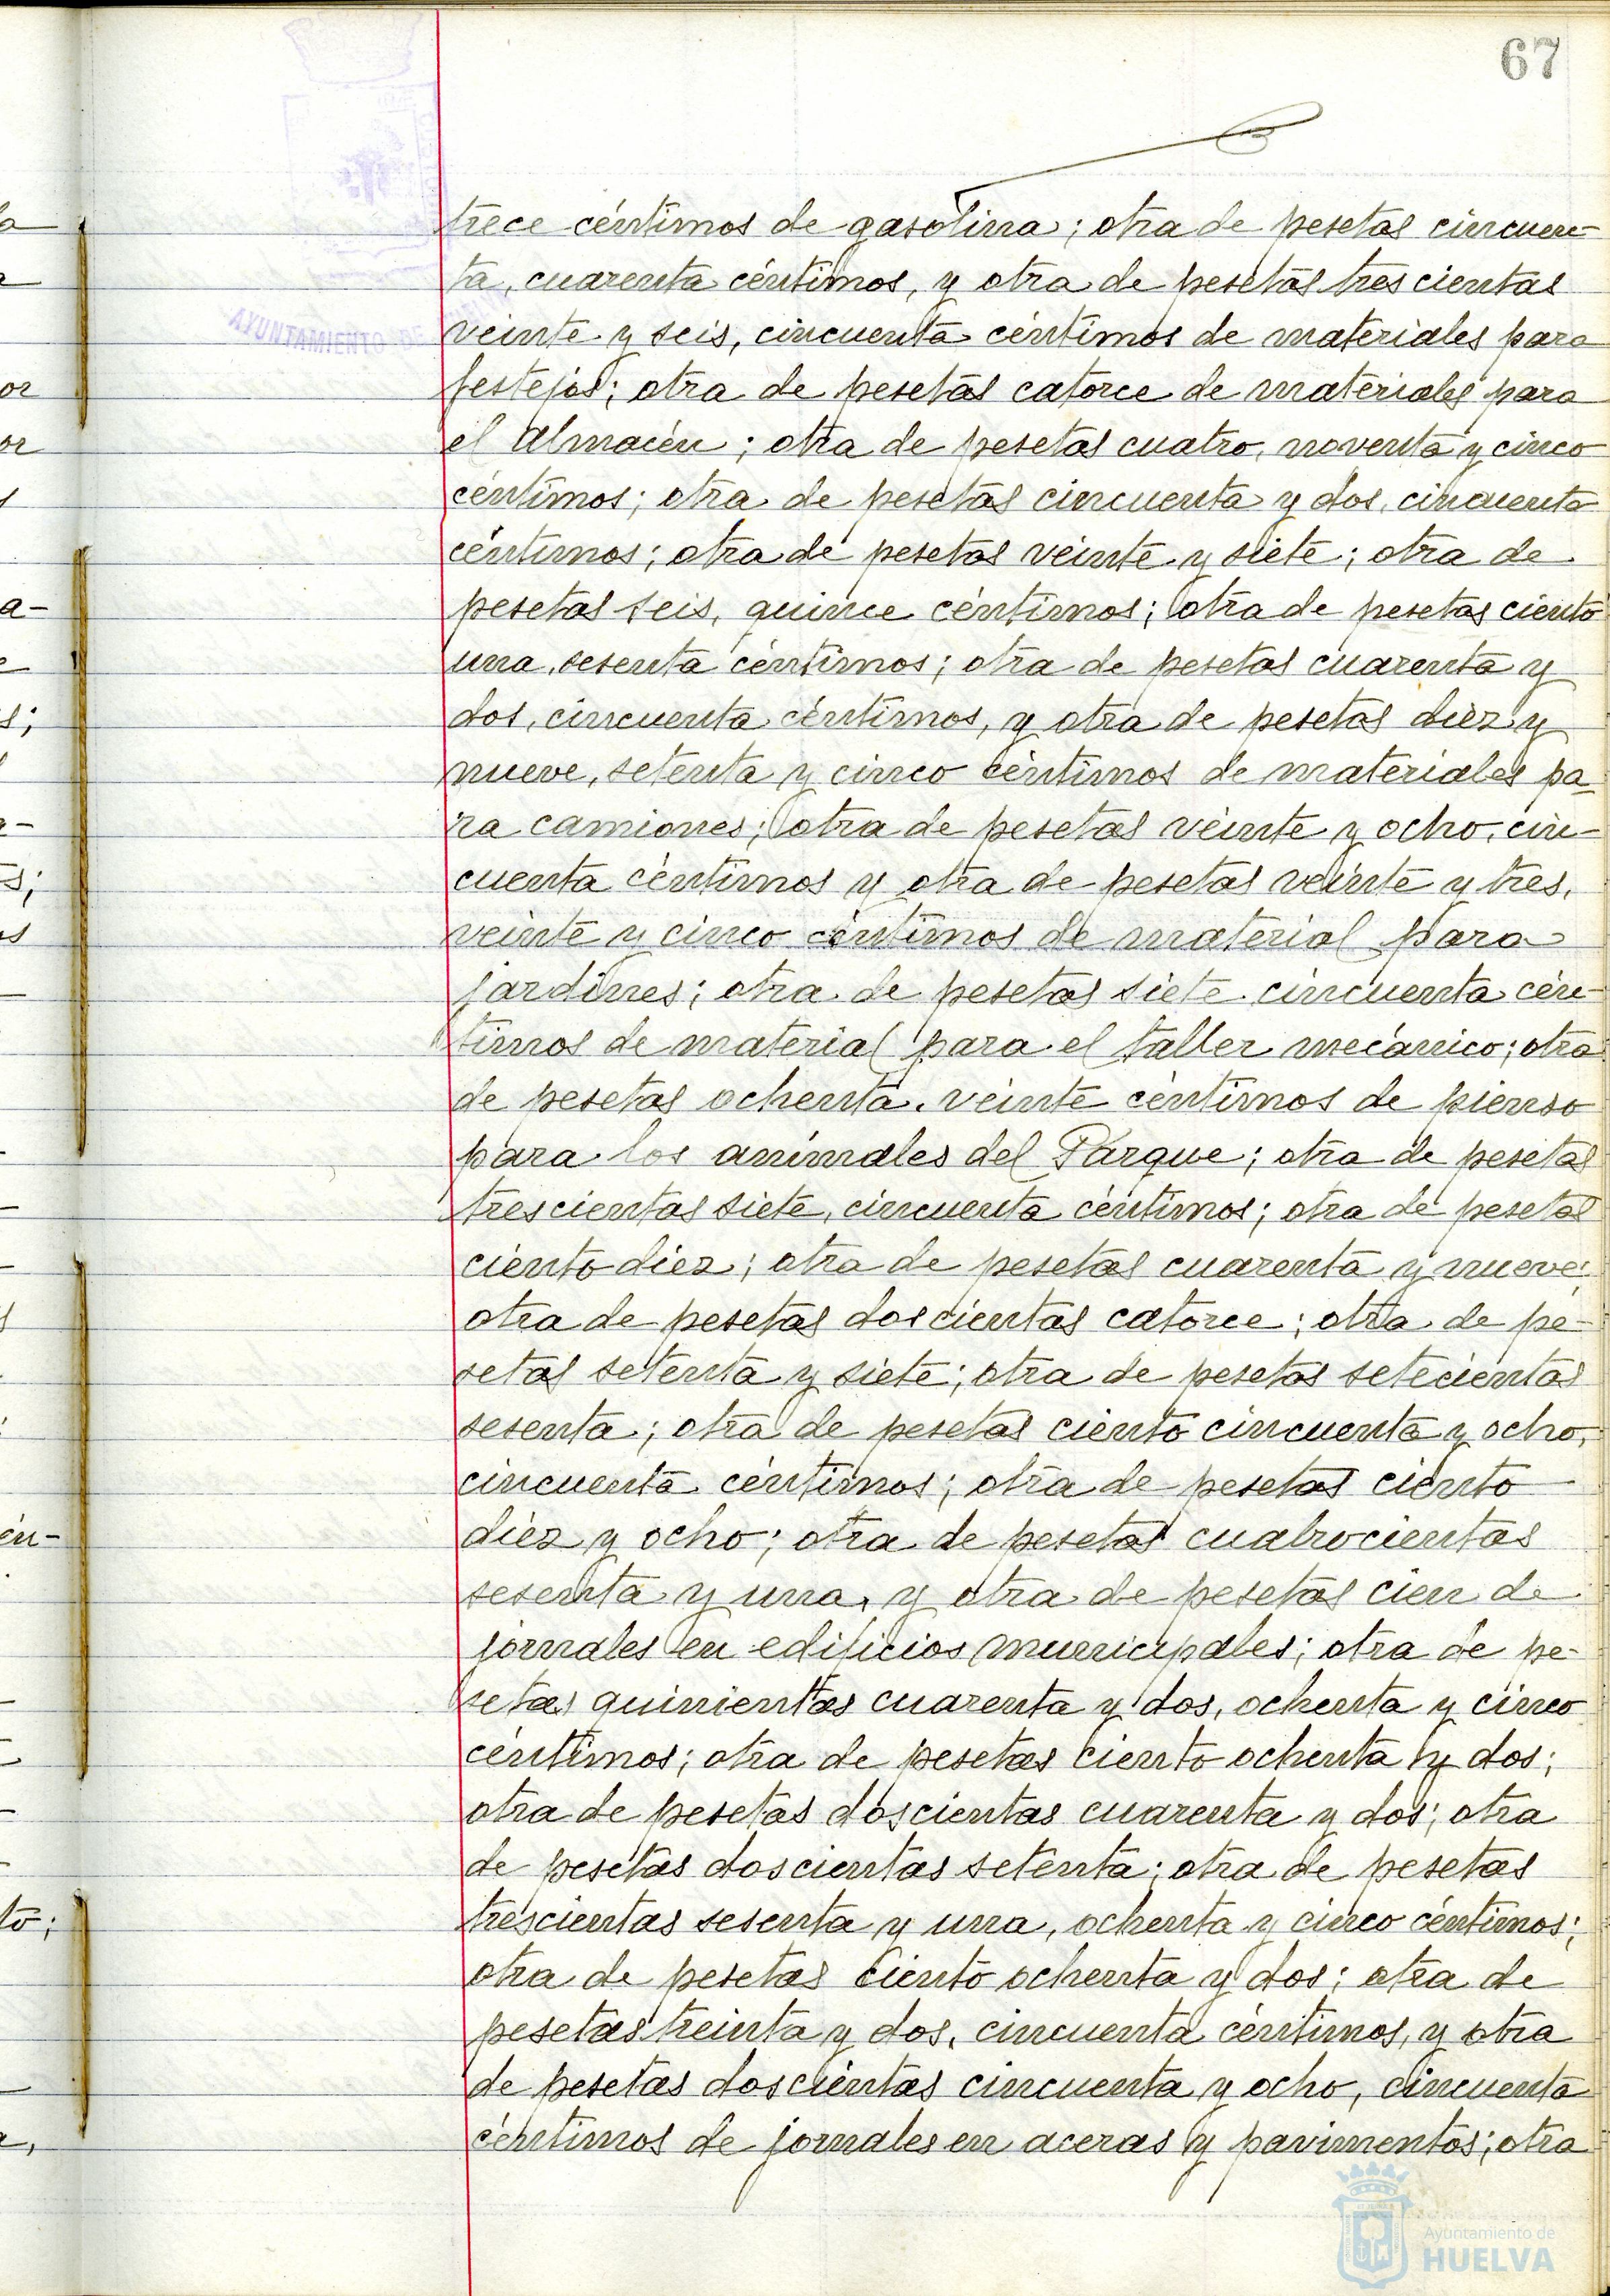 67
trece céntimos de gasolina; otra de pesetas cincuen-
ta, cuarenta céntimos, y otra de pesetas trescientas
veinte y seis, cincuenta céntimos de materiales para
festejos; otra de pesetas catorce de materiales para
el Almacén; otra de pesetas cuatro, noventa y cinco
céntimos; otra de pesetas cincuenta y dos, cincuenta
céntimos; otra de pesetas veinte y siete; otra de
pesetas seis, quince céntimos; otra de pesetas ciento
una, sesenta céntimos; otra de pesetas cuarenta y
dos, cincuenta céntimos, y otra de pesetas diez y
nueve, setenta y cinco céntimos de materiales pa-
ra camiones; otra de pesetas veinte y ocho, cin-
cuenta céntimos y otra de pesetas veinte y tres,
veinte y cinco céntimos de material para
jardines; otra de pesetas siete cincuenta cén-
timos de material para el taller mecánico; otra
de pesetas ochenta, veinte céntimos de pienso
para los animales del Parque; otra de pesetas
trescientas siete, cincuenta céntimos; otra de pesetas
ciento diez; otra de pesetas cuarenta y nueve;
otra de pesetas doscientas catorce; otra de pe-
setas setenta y siete; otra de pesetas setecientas
sesenta; otra de pesetas ciento cincuenta y ocho,
cincuenta céntimos; otra de pesetas ciento
diez y ocho; otra de pesetas cuatrocientas
sesenta y una, y otra de pesetas cien de
jornales en edificios municipales; otra de pe-
setas quinientas cuarenta y dos, ochenta y cinco
céntimos; otra de pesetas ciento ochenta y dos;
otra de pesetas doscientas cuarenta y dos; otra
de pesetas doscientas setenta; otra de pesetas
trescientas sesenta y una, ochenta y cinco céntimos;
otra de pesetas ciento ochenta y dos; otra de
pesetas treinta y dos, cincuenta céntimos, y otra
de pesetas doscientas cincuenta y ocho, cincuenta
céntimos de jornales en aceras y pavimentos; otra
AYUNTAMIENTO DE
Ayuntamiento de
HUELVA